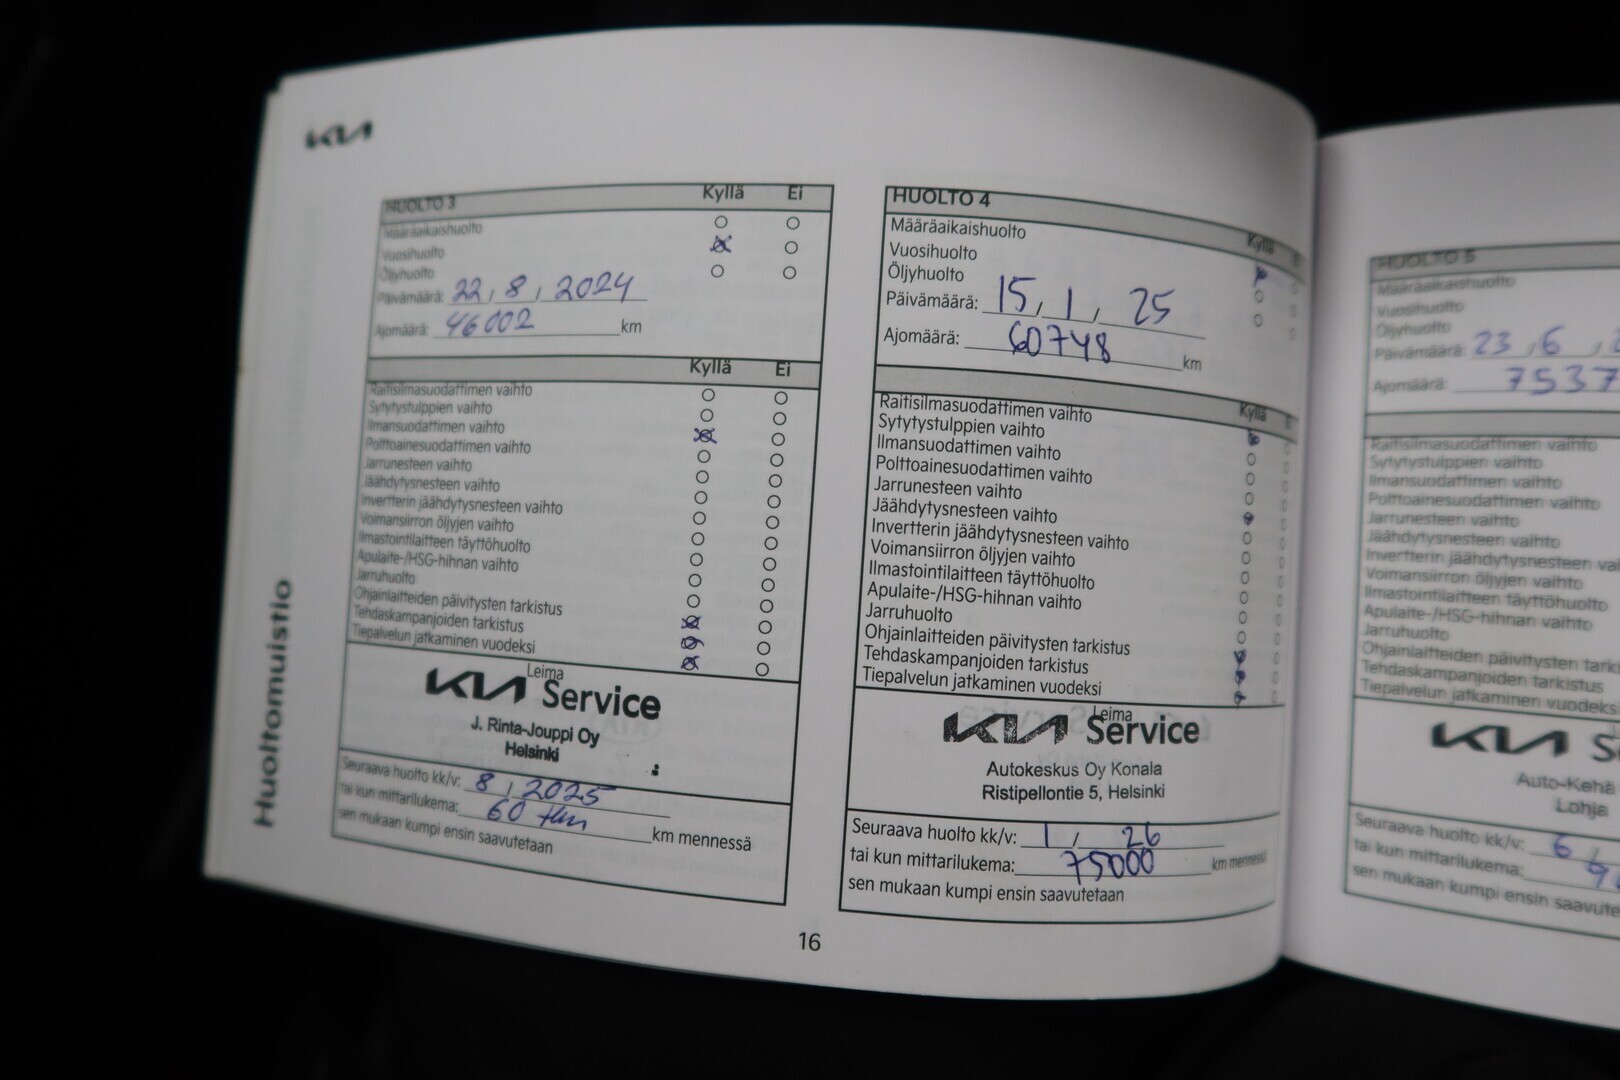 KIA
Huoltomuistio
HUOLTO 3 Kyllä Ei
Määräaikaishuolto
Vuosihuolto
Öljyhuolto
Päivämäärä: 22, 8, 2024
Ajomäärä: 46002 km
Kyllä Ei
Raitisilmasuodattimen vaihto
Sytytystulppien vaihto
Ilmansuodattimen vaihto
Polttoainesuodattimen vaihto
Jarrunesteen vaihto
Jäähdytysnesteen vaihto
Invertterin jäähdytysnesteen vaihto
Voimansiirron öljyjen vaihto
Ilmastointilaitteen täyttöhuolto
Apulaite-/HSG-hihnan vaihto
Jarruhuolto
Ohjainlaitteiden päivitysten tarkistus
Tehdaskampanjoiden tarkistus
Tiepalvelun jatkaminen vuodeksi
Leima
KIA Service
J. Rinta-Jouppi Oy
Helsinki
Seuraava huolto kk/v: 8, 2025
tai kun mittarilukema: 60 tkm km mennessä
sen mukaan kumpi ensin saavutetaan
HUOLTO 4 Kyllä
Määräaikaishuolto
Vuosihuolto
Öljyhuolto
Päivämäärä: 15, 1, 25
Ajomäärä: 60748 km
Kyllä
Raitisilmasuodattimen vaihto
Sytytystulppien vaihto
Ilmansuodattimen vaihto
Polttoainesuodattimen vaihto
Jarrunesteen vaihto
Jäähdytysnesteen vaihto
Invertterin jäähdytysnesteen vaihto
Voimansiirron öljyjen vaihto
Ilmastointilaitteen täyttöhuolto
Apulaite-/HSG-hihnan vaihto
Jarruhuolto
Ohjainlaitteiden päivitysten tarkistus
Tehdaskampanjoiden tarkistus
Tiepalvelun jatkaminen vuodeksi
Leima
KIA Service
Autokeskus Oy Konala
Ristipellontie 5, Helsinki
Seuraava huolto kk/v: 1 / 26
tai kun mittarilukema: 75000 km mennessä
sen mukaan kumpi ensin saavutetaan
16
HUOLTO 5
Määräaikaishuolto
Vuosihuolto
Öljyhuolto
Päivämäärä: 23, 6,
Ajomäärä: 7537
Raitisilmasuodattimen vaihto
Sytytystulppien vaihto
Ilmansuodattimen vaihto
Polttoainesuodattimen vaihto
Jarrunesteen vaihto
Jäähdytysnesteen vaihto
Invertterin jäähdytysnesteen
Voimansiirron öljyjen vaihto
Ilmastointilaitteen täyttöhuolto
Apulaite-/HSG-hihnan vaihto
Jarruhuolto
Ohjainlaitteiden päivitysten
Tehdaskampanjoiden tarkistus
Tiepalvelun jatkaminen
KIA
Auto-Kehä
Lohja
Seuraava huolto kk/v: 6,
tai kun mittarilukema:
sen mukaan kumpi ensin